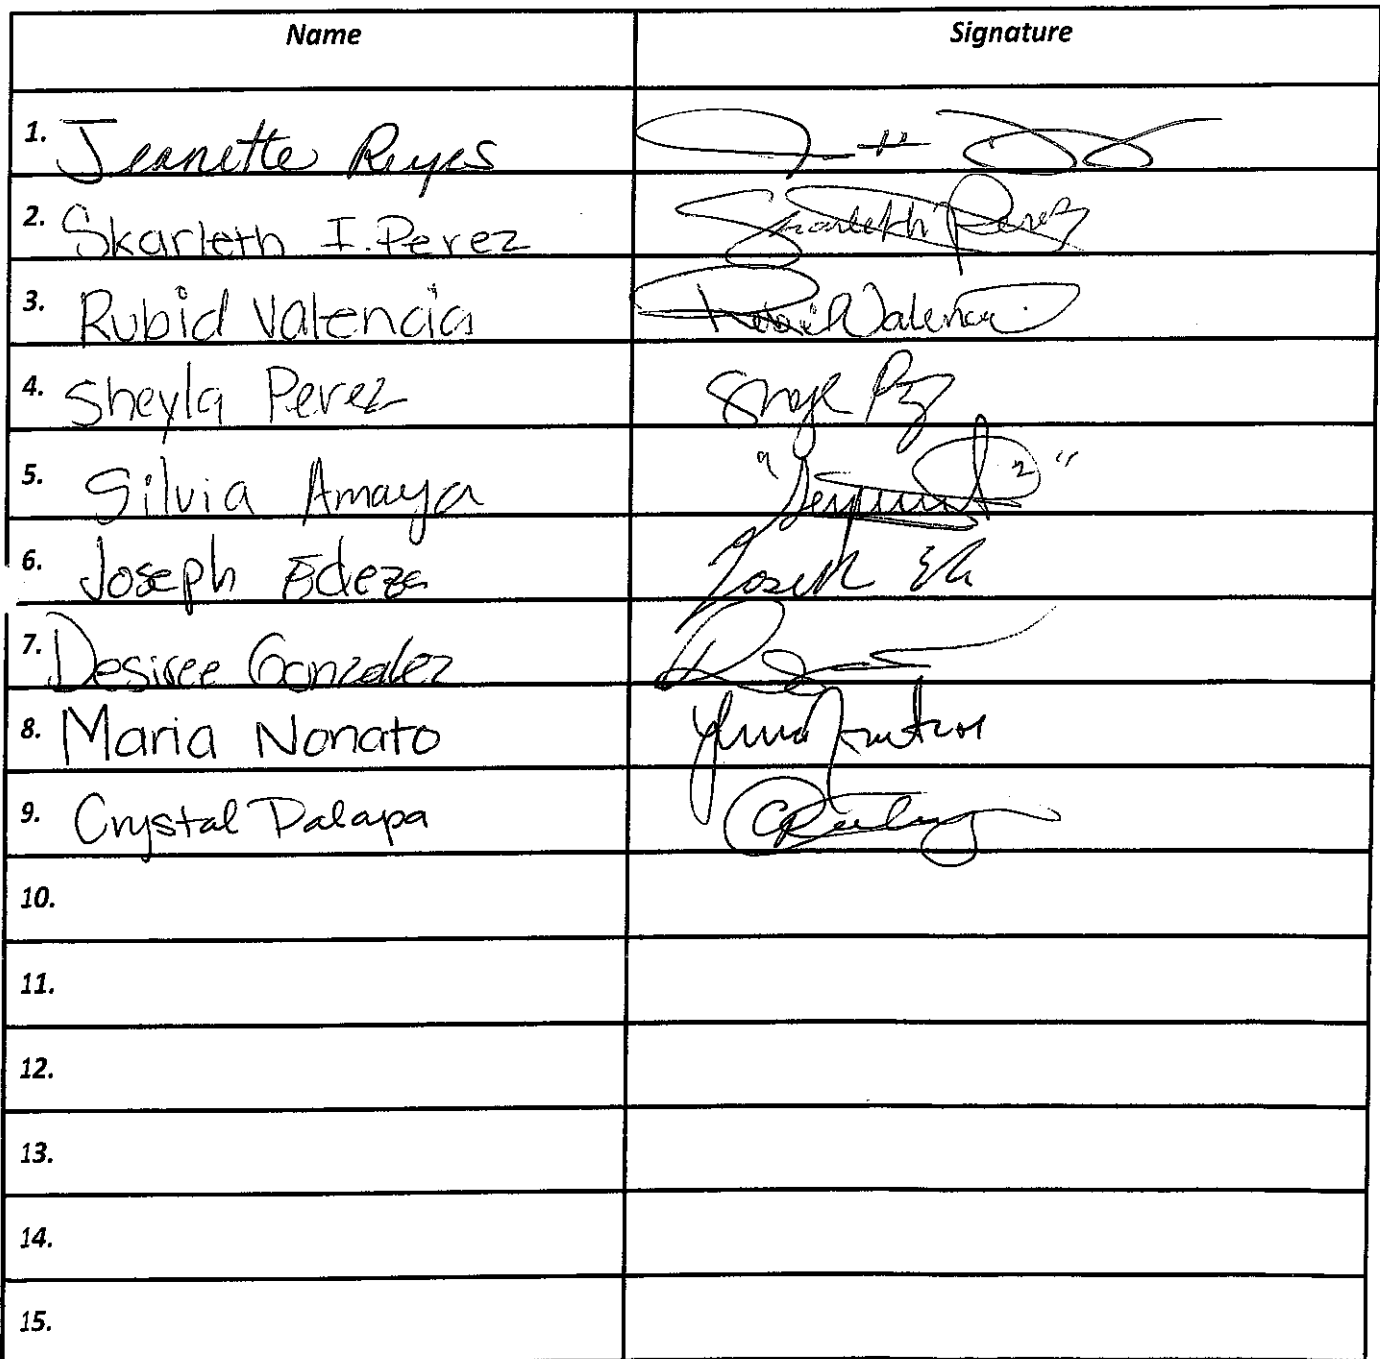 Name Signature
1. Jeanette Reyes
2. Skarleth I. Perez Skarleth Perez
3. Rubid Valencia Valencia
4. Sheyla Perez
5. Silvia Amaya
6. Joseph Edeza Joseph
7. Desiree Gonzalez
8. Maria Nonato
9. Crystal Palapa
10.
11.
12.
13.
14.
15.